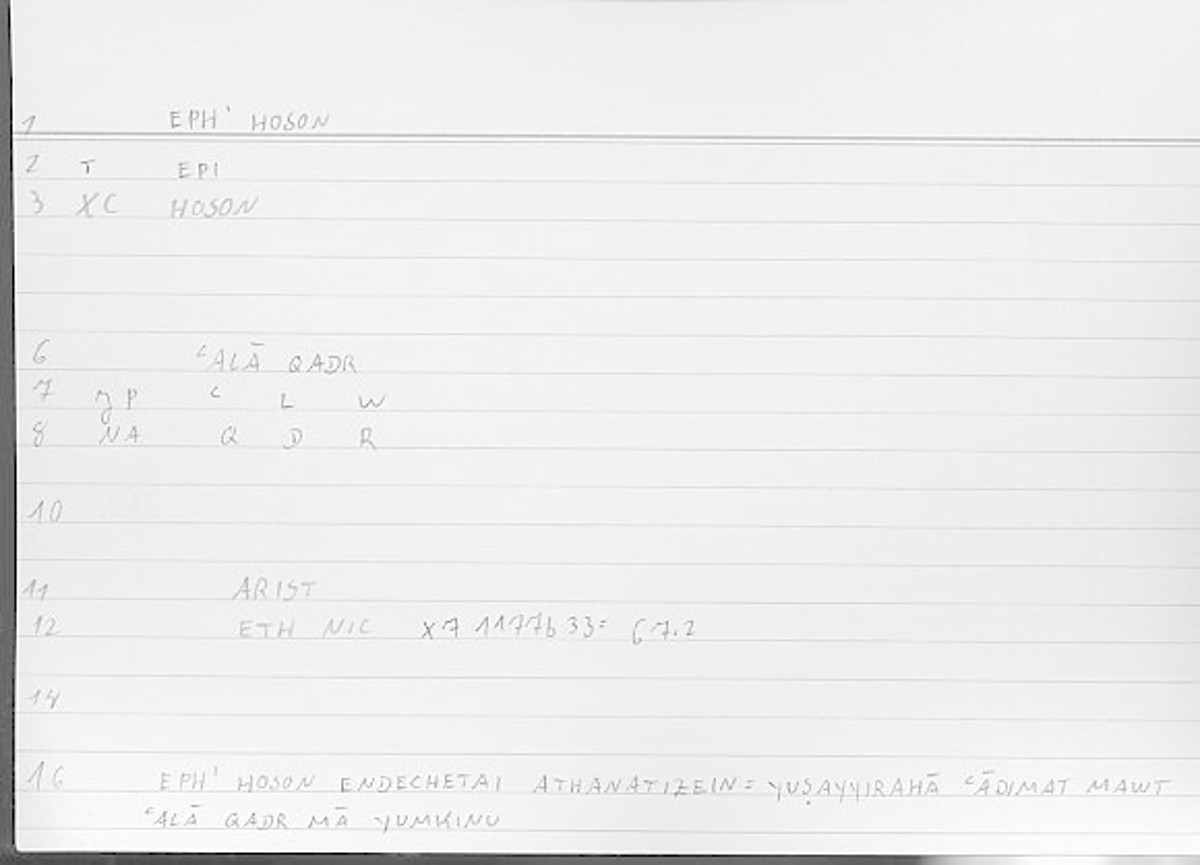 1 EPH' HOSON
2 T EPI
3 XC HOSON
6 ʿALĀ QADR
7 ȝP ʿ L W
8 NA Q D R
10
11 ARIST
12 ETH NIC X7 1177b33= 67.2
14
16 EPH' HOSON ENDECHETAI ATHANATIZEIN= YUṢAYYIRAHĀ ʿĀDIMAT MAWT
ʿALĀ QADR MĀ YUMKINU